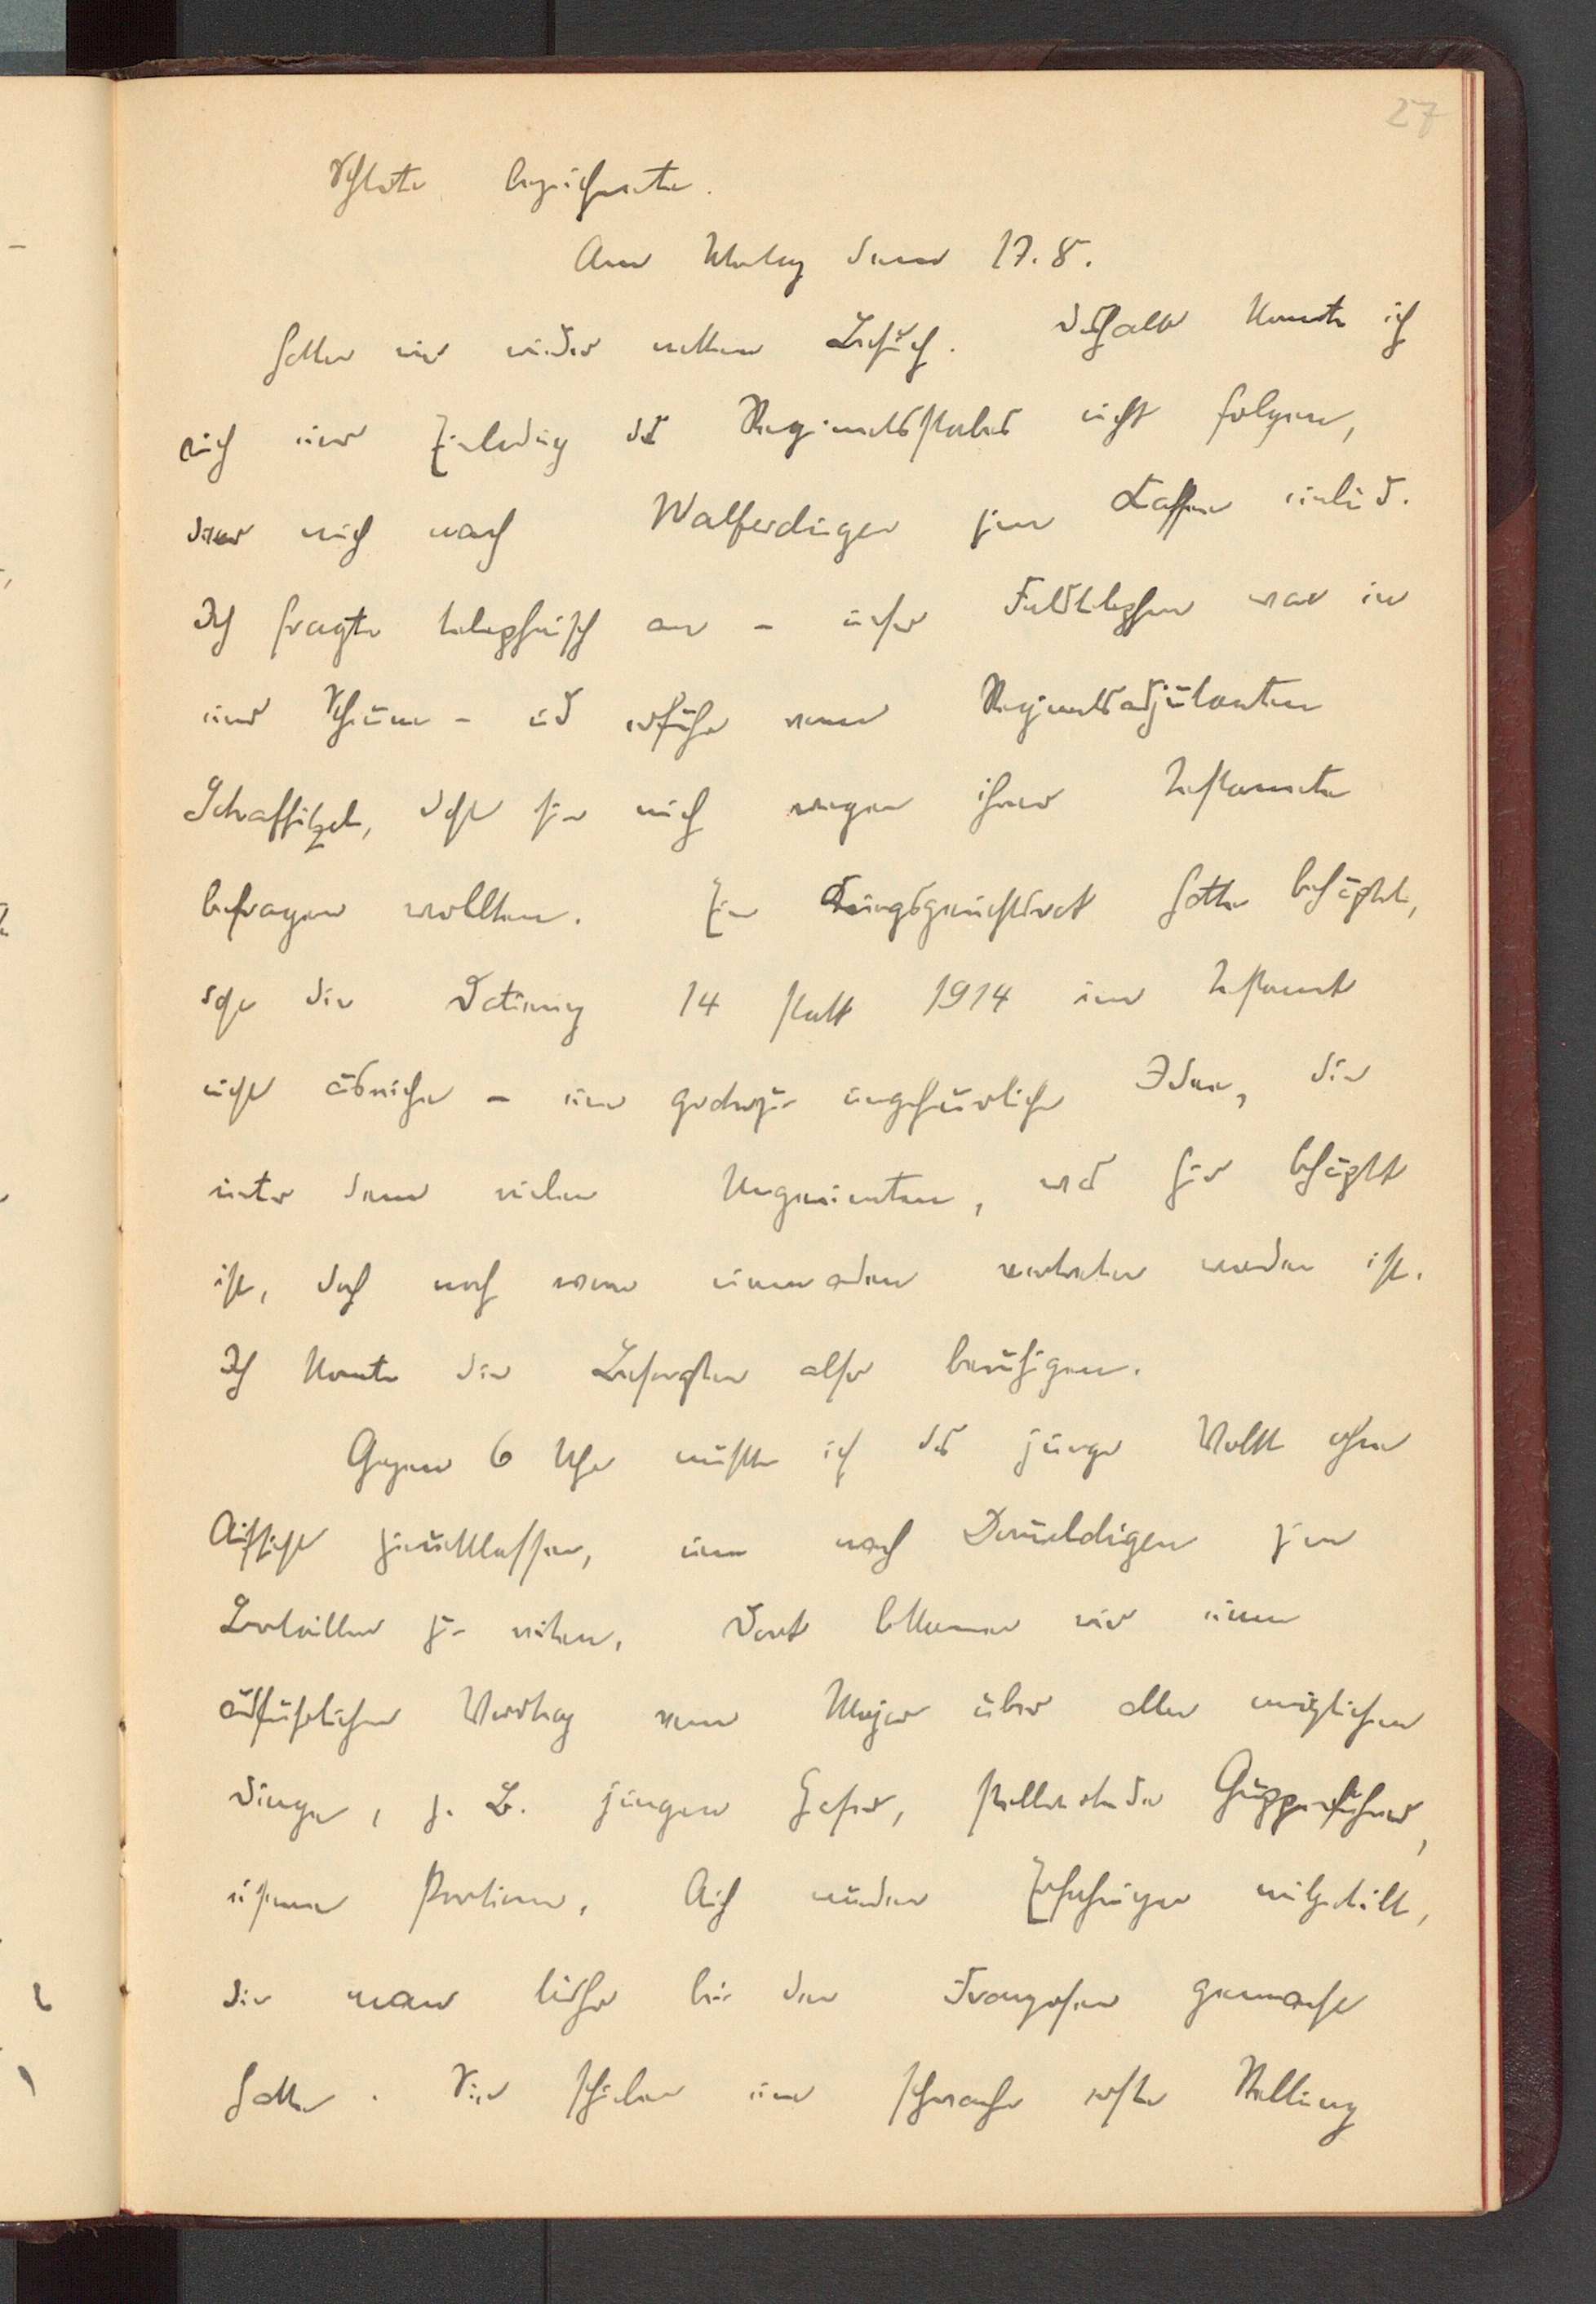 27
Schlote bezeichnete.
Am Montag dem 17. 8.
hatten wir wieder netten Besuch. Deshalb konnte ich
auch einer Einladung des Regimentsstabes nicht folgen,
der mich nach Walferdingen zum Kaffee einlud.
Ich fragte telephonisch an – unser Feldtelephon war in
einer Scheune – und erfuhr vom Regimentsadjutanten
Schaffitzel, daß sie mich wegen ihrer Testamente
befragen wollten. Ein Kriegsgerichtsrat hatte behauptet,
daß die Datierung 14 statt 1914 im Testament
nicht ausreiche – eine geradezu ungeheuerliche Idee, die
unter dem vielen Ungereimten, was hier behauptet
ist, doch noch von niemandem vertreten worden ist.
Ich konnte die Besorgten also beruhigen.
Gegen 6 Uhr mußte ich das junge Volk ohne
Aufsicht zurücklassen, um nach Dommeldingen zum
Bataillon zu reiten. Dort bekamen wir einen
ausführlichen Vortrag vom Major über alle möglichen
Dinge, z. B. jungen Hafer, stellvertretende Gruppenführer,
eiserne Portionen. Auch wurden Erfahrungen mitgeteilt,
die man bisher bei den Franzosen gemacht
hatte. Sie schieben eine schwache erste Stellung